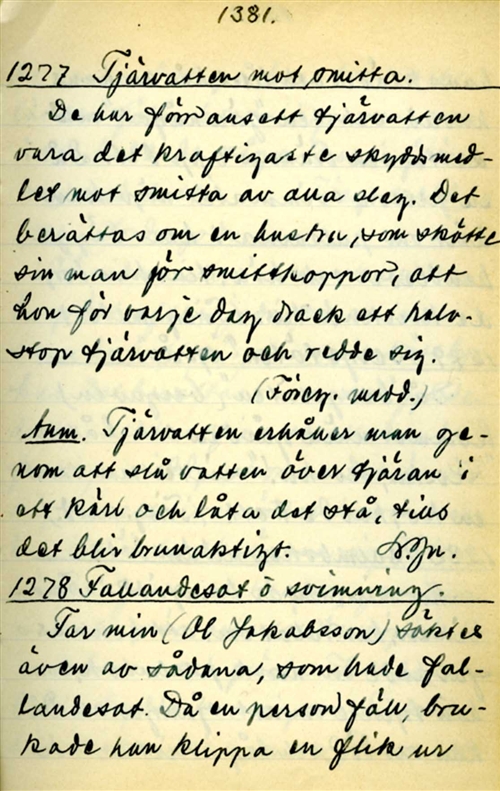 1381.
1277 Tjärvatten mot smitta.
De har förr ansett tjärvatten
vara det kraftigaste skyddsmed-
let mot smitta av alla slag. Det
berättas om en hustru, som skötte
sin man för smittkoppor, att
hon för varje dag drack ett halv-
stop tjärvatten och redde sig.
(Föreg. medd.)
Anm. Tjärvatten erhåller man ge-
nom att slå vatten över tjäran i
ett kärl och låta det stå, tills
det blir brunaktigt.
1278 Fallandesot o svimning.
Far min (Ol Jakobsson) söktes
även av sådana, som hade fal-
landesot. Då en person föll, bru-
kade han klippa en flik ur